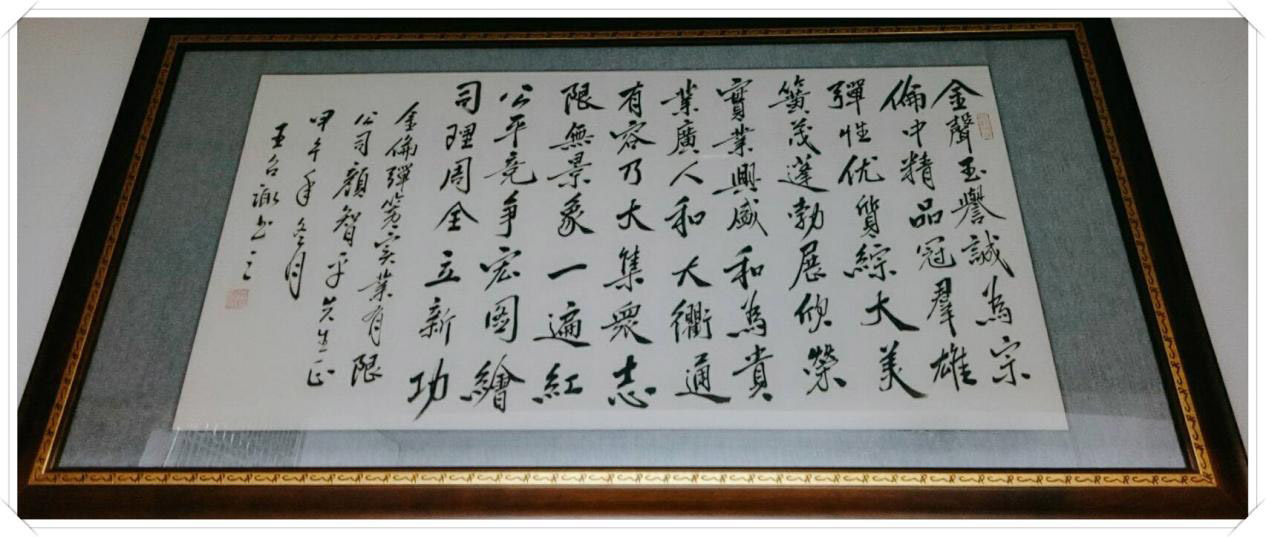 金聲玉譽誠為宗
倫中精品冠羣雄
彈性优質綜大美
簧茂蓬勃展欣榮
實業興盛和為貴
業廣人和大衢通
有容乃大集衆志
限無景象一遍紅
公平竞争宏图繪
司理周全立新功
金倫彈簧实業有限
公司顏智平先生正
甲午年冬月
王